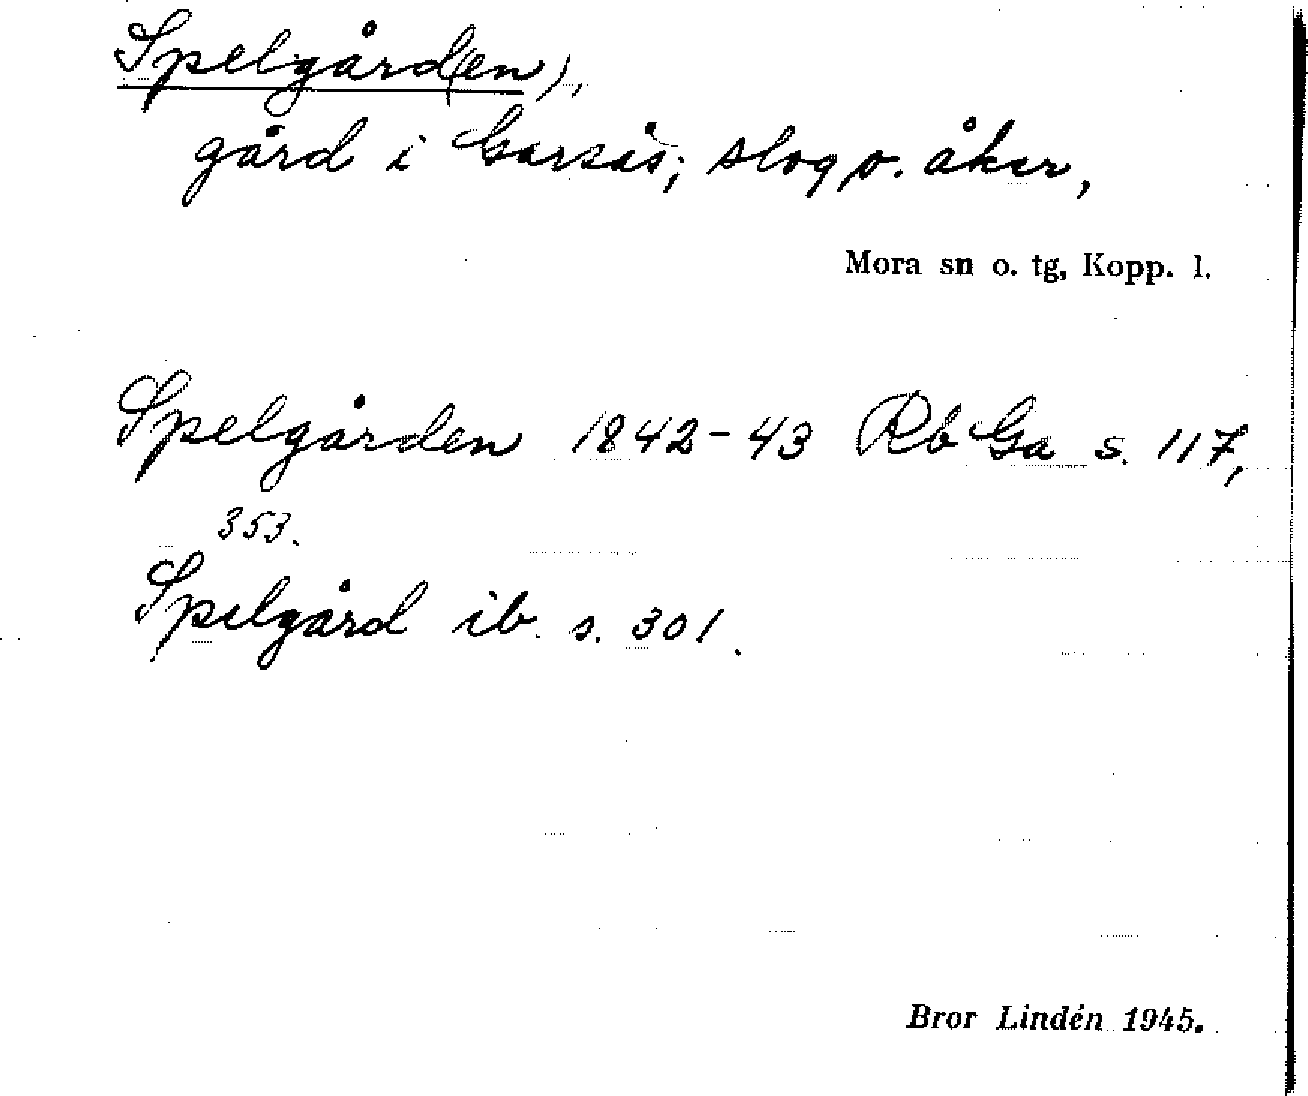 Spelgård(en),
gård i Garsås; slog o. åker,
Mora sn o. tg, Kopp. l.
Spelgården 1842-43 Rb Ga s. 117,
353.
Spelgård ib. s. 301.
Bror Lindén 1945.